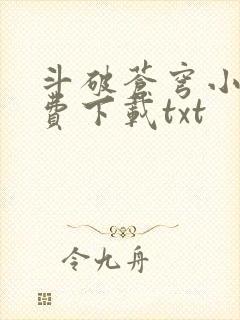 斗破苍穹小
费下载txt
令九舟